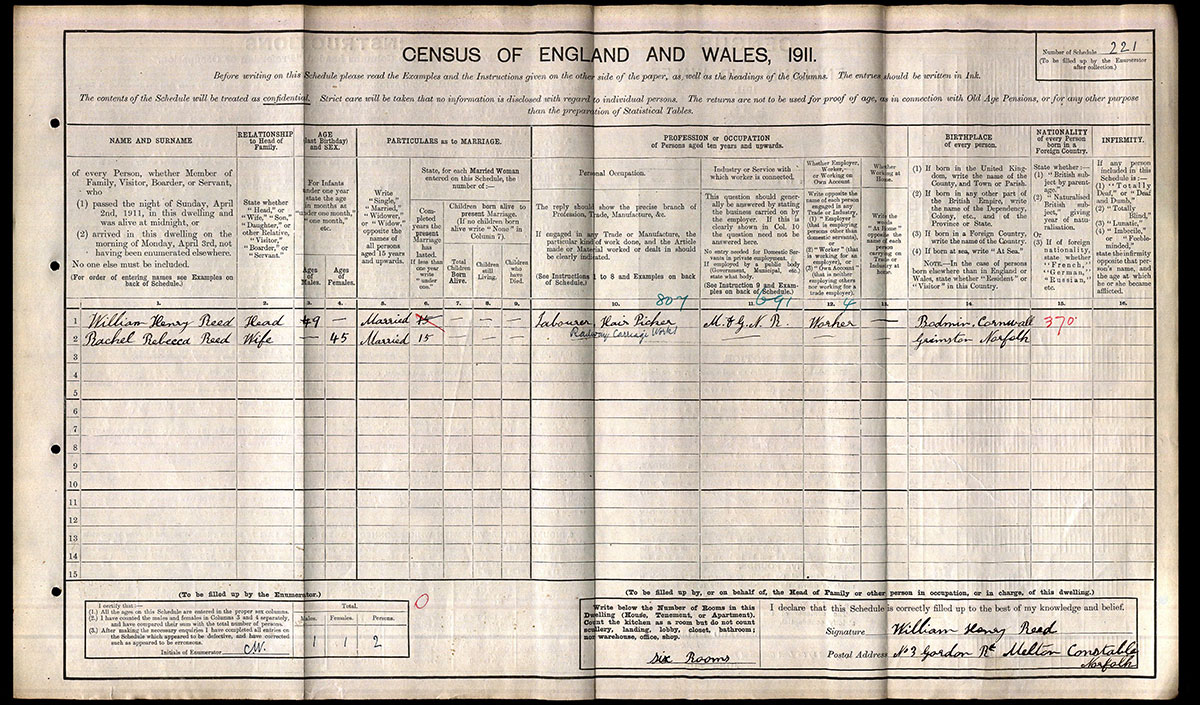 CENSUS OF ENGLAND AND WALES, 1911.
Number of Schedule 221
(To be filled up by the Enumerator
after collection.)
Before writing on this Schedule please read the Examples and the Instructions given on the other side of the paper, as well as the headings of the Columns. The entries should be written in Ink.
The contents of the Schedule will be treated as confidential. Strict care will be taken that no information is disclosed with regard to individual persons. The returns are not to be used for proof of age, as in connection with Old Age Pensions, or for any other purpose
than the preparation of Statistical Tables.
NAME AND SURNAME
of every Person, whether Member of
Family, Visitor, Boarder, or Servant,
who
(1) passed the night of Sunday, April
2nd, 1911, in this dwelling and
was alive at midnight, or
(2) arrived in this dwelling on the
morning of Monday, April 3rd, not
having been enumerated elsewhere.
No one else must be included.
(For order of entering names see Examples on
back of Schedule.)
1.
RELATIONSHIP
to Head of
Family.
State whether
"Head," or
"Wife," "Son,"
"Daughter," or
other Relative,
"Visitor,"
"Boarder," or
"Servant."
2.
AGE
(last Birthday)
and SEX.
For Infants
under one year
state the age
in months as
"under one month,"
"one month,"
etc.
Ages
of
Males.
3.
Ages
of
Females.
4.
PARTICULARS as to MARRIAGE.
Write
"Single,"
"Married,"
"Widower,"
or "Widow,"
opposite the
names of
all persons
aged 15 years
and upwards.
5.
State, for each Married Woman
entered on this Schedule, the
number of:—
Completed
years the
present
Marriage
has
lasted.
If less than
one year
write
"under
one."
6.
Children born alive to
present Marriage.
(If no children born
alive write "None" in
Column 7).
Total
Children
Born
Alive.
7.
Children
still
Living.
8.
Children
who
have
Died.
9.
PROFESSION or OCCUPATION
of Persons aged ten years and upwards.
Personal Occupation.
The reply should show the precise branch of
Profession, Trade, Manufacture, &c.
If engaged in any Trade or Manufacture, the
particular kind of work done, and the Article
made or Material worked or dealt in should
be clearly indicated.
(See Instructions 1 to 8 and Examples on back
of Schedule.)
10.
807
Industry or Service with
which worker is connected.
This question should generally
be answered by stating
the business carried on by
the employer. If this is
clearly shown in Col. 10
the question need not be
answered here.
No entry needed for Domestic Servants
in private employment.
If employed by a public body
(Government, Municipal, etc.)
state what body.
(See Instruction 9 and Examples
on back of Schedule.)
11.
691
Whether Employer,
Worker, or
Working on Own
Account.
Write opposite the
name of each person
engaged in any
Trade or Industry,
(1) "Employer"
(that is employing
persons other than
domestic servants),
or
(2) "Worker" (that
is working for an
employer), or
(3) "Own Account"
(that is neither
employing others
nor working for a
trade employer).
12.
4
Whether
Working at
Home.
Write the
words
"At Home"
opposite the
name of each
person
carrying on
Trade or
Industry at
home.
13.
BIRTHPLACE
of every person.
(1) If born in the United Kingdom,
write the name of the
County, and Town or Parish.
(2) If born in any other part of
the British Empire, write
the name of the Dependency,
Colony, etc., and of the
Province or State.
(3) If born in a Foreign Country,
write the name of the Country.
(4) If born at sea, write "At Sea."
NOTE.—In the case of persons
born elsewhere than in England or
Wales, state whether "Resident" or
"Visitor" in this Country.
14.
NATIONALITY
of every Person
born in a
Foreign Country.
State whether:—
(1) "British subject
by parentage,"
(2) "Naturalised
British subject,"
giving
year of naturalisation.
Or
(3) If of foreign
nationality,
state whether
"French,"
"German,"
"Russian,"
etc.
15.
INFIRMITY.
If any person
included in this
Schedule is:—
(1) "Totally
Deaf," or "Deaf
and Dumb,"
(2) "Totally
Blind,"
(3) "Lunatic,"
(4) "Imbecile,"
or "Feeble-minded,"
state the infirmity
opposite that person's
name, and
the age at which
he or she became
afflicted.
16.
1 William Henry Reed Head 49 — Married 15 — — — Labourer. Hair Picker M. & G. N. R. Worker — Bodmin, Cornwall 370
Railway Carriage Works
2 Rachel Rebecca Reed Wife — 45 Married 15 — — — — — — Grimston Norfolk
3
4
5
6
7
8
9
10
11
12
13
14
15
(To be filled up by the Enumerator.)
I certify that:—
(1.) All the ages on this Schedule are entered in the proper sex columns.
(2.) I have counted the males and females in Columns 3 and 4 separately,
and have compared their sum with the total number of persons.
(3.) After making the necessary enquiries I have completed all entries on
the Schedule which appeared to be defective, and have corrected
such as appeared to be erroneous.
Initials of Enumerator CW.
Total.
Males. Females. Persons.
1 1 2
0
(To be filled up by, or on behalf of, the Head of Family or other person in occupation, or in charge, of this dwelling.)
Write below the Number of Rooms in this
Dwelling (House, Tenement, or Apartment).
Count the kitchen as a room but do not count
scullery, landing, lobby, closet, bathroom;
nor warehouse, office, shop.
Six Rooms
I declare that this Schedule is correctly filled up to the best of my knowledge and belief.
Signature William Henry Reed
Postal Address No 3 Gordon Rd Melton Constable
Norfolk